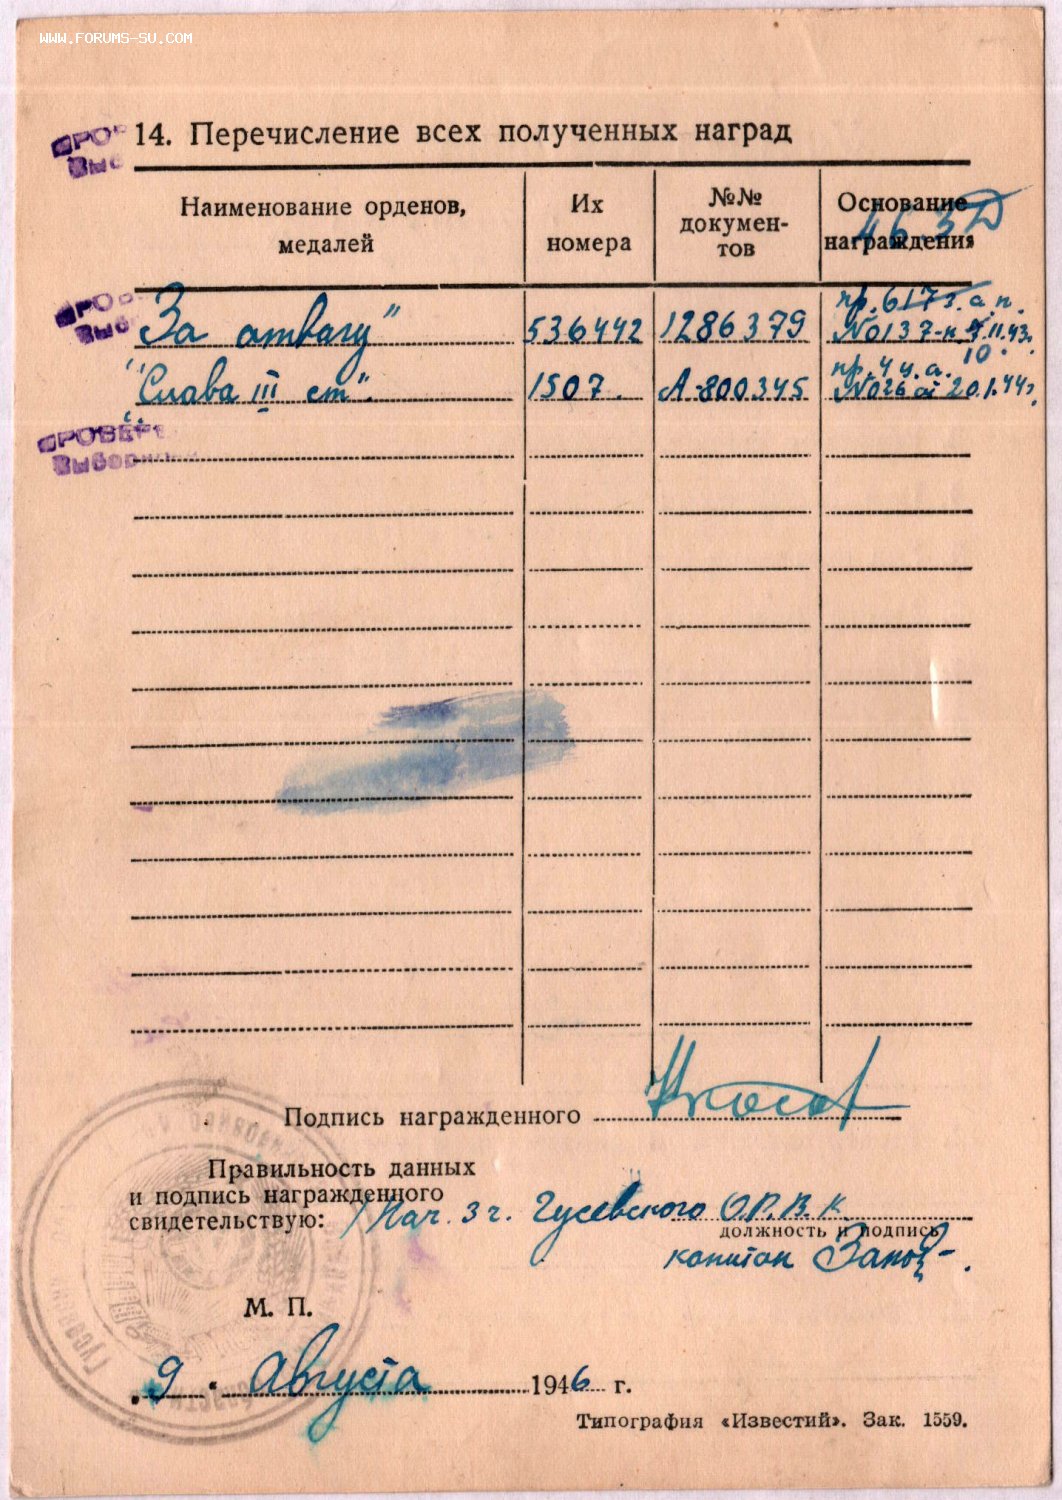 WWW.FORUMS-SU.COM
14. Перечисление всех полученных наград
Наименование орденов, медалей
Их номера
№№ документов
Основание награждения
46.3
За отвагу"
536442
1286379
пр. 617 з.а.п.
№0137-н 11.43.
10.
"Слава III ст".
1507.
А-800345
пр. 4 у.а.
№026 от 20.1.44г.
ПРОВЕРЕ
Выборн
Подпись награжденного
Правильность данных
и подпись награжденного
свидетельствую: Нач. 3 ч. Гусевского О.Р.В.К
должность и подпись
капитан
М. П.
9 Августа 1946 г.
Типография «Известий». Зак. 1559.